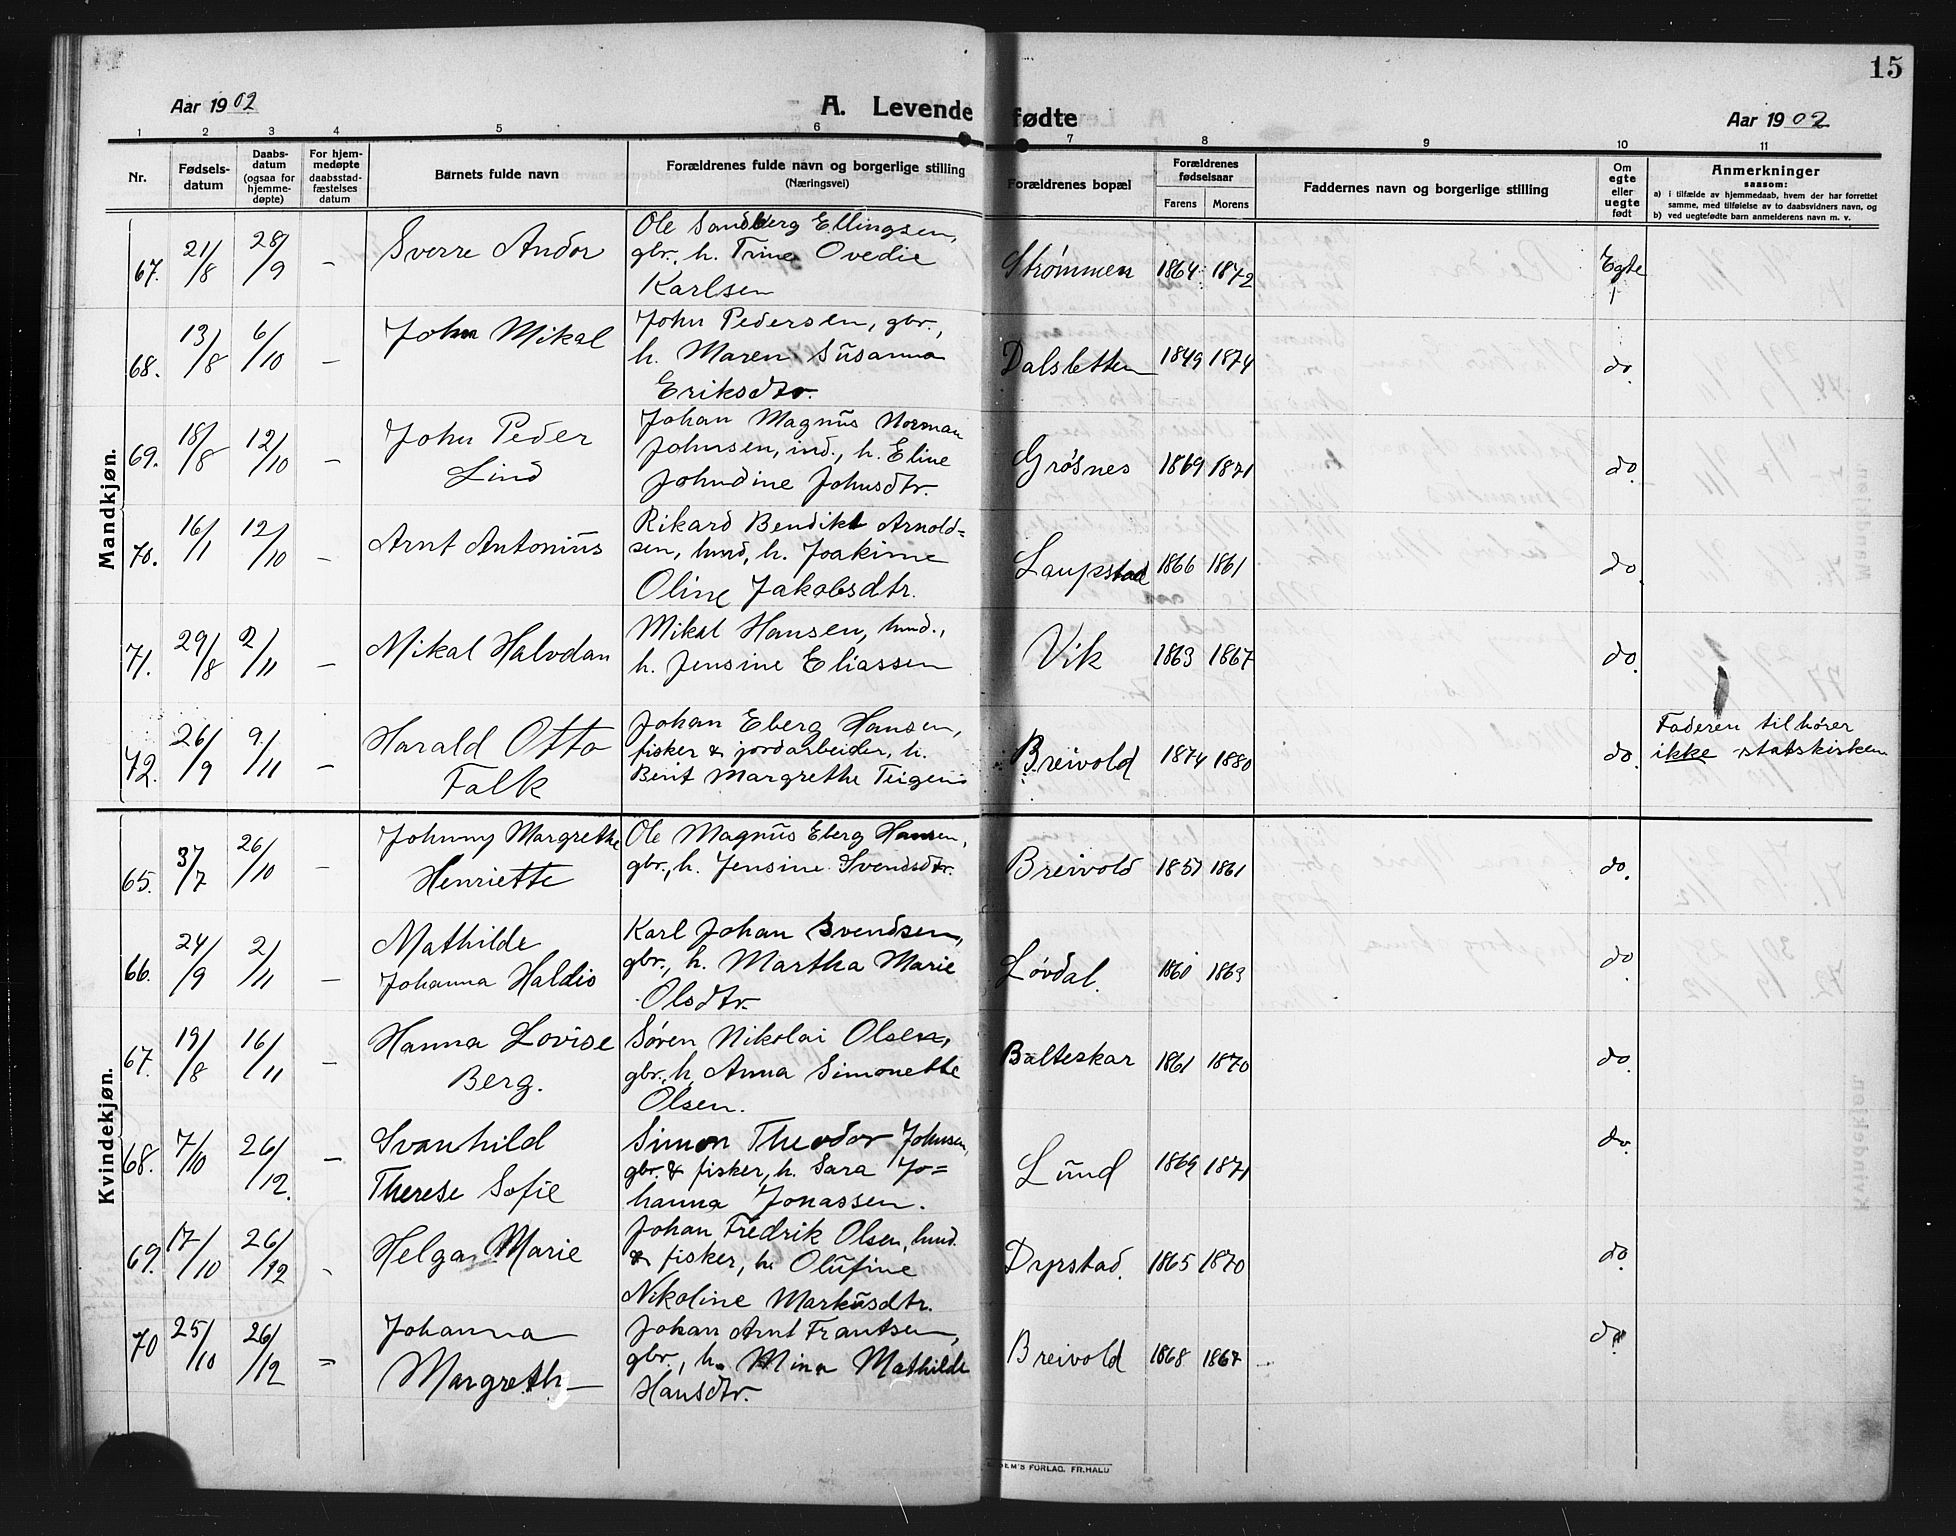 15
Aar 1902
A. Levende fødte
Aar 1902
1 2 3 4 5 6 7 8 9 10 11
Nr.
Fødsels-
datum
Daabs-
datum
(ogsaa for
hjemme-
døpte)
For hjem-
medøpte
daabsstad-
fæstelses
datum
Barnets fulde navn
Forældrenes fulde navn og borgerlige stilling
(Næringsvei)
Forældrenes bopæl
Forældrenes
fødselsaar
Farens Morens
Faddernes navn og borgerlige stilling
Om
egte
eller
uegte
født
Anmerkninger
saasom:
a) i tilfælde av hjemmedaab, hvem der har forrettet
samme, med tilføielse av to daabsvidners navn, og
b) ved uegtefødte barn anmelderens navn m. v.
Mandkjøn.
67. 21/8 28/9 – Sverre Andor
Ole Sandberg Ellingsen,
gbr., h. Trine Ovedie
Karlsen
Strømmen 1864 1872 Egte
68. 13/8 6/10 – John Mikal
John Pedersen, gbr.,
h. Maren Susanna
Eriksdtr.
Dalsletten 1849 1874 do.
69. 18/8 12/10 – John Peder
Lind
Johan Magnus Norman
Johnsen, ind., h. Eline
Johndine Johnsdtr.
Grøsnes 1869 1871 do.
70. 16/1 12/10 – Arnt Antonius
Rikard Bendikt Arnold=
sen, hmd, h. Joakime
Oline Jakobsdtr.
Laupstad 1866 1861 do.
71. 29/8 2/11 – Mikal Halvdan
Mikal Hansen, hmd.,
h. Jensine Eliassen
Vik 1863 1867 do.
72. 26/9 9/11 – Harald Otto
Falk
Johan Eberg Hansen,
fisker & jordarbeider, h.
Berit Margrethe Teigen
Breivold 1874 1880 do.
Faderen tilhører
ikke statskirken
Kvindekjøn.
65. 3/7 26/10 – Johnny Margrethe
Henriette
Ole Magnus Eberg Hansen,
gbr., h. Jensine Svendsdtr.
Breivold 1857 1861 do.
66. 24/9 2/11 – Mathilde
Johanna Haldis
Karl Johan Svendsen,
gbr., h. Martha Marie
Olsdtr.
Løvdal. 1860 1863 do.
67. 19/8 16/11 – Hanna Lovise
Berg.
Søren Nikolai Olsen,
gbr., h. Anna Simonette
Olsen.
Balteskar 1861 1870 do.
68. 7/10 26/12. – Svanhild
Therese Sofie
Simon Theodor Johnsen,
gbr. & fisker, h. Sara Jo=
hanna Jonassen.
Lund 1869 1871 do.
69. 17/10 26/12 – Helga Marie
Johan Fredrik Olsen, hmd.
& fisker, h. Olufine
Nikoline Markusdtr.
Dyrstad. 1865 1870 do.
70 25/10 26/12 = Johanna
Margreth
Johan Arnt Frantsen,
gbr., h. Mina Mathilde
Hansdtr.
Breivold 1868 1867 do.
FORLAG, FR.HALD